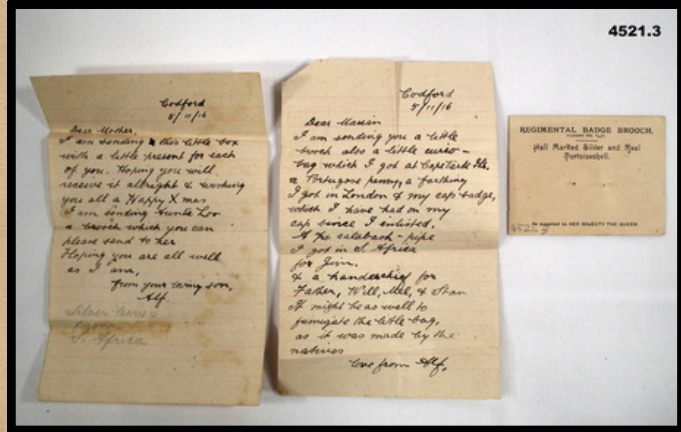 4521.3
Codford
5/11/16
Dear Mother,
I am sending this little box
with a little present for each
of you. Hoping you will
receive it allright & wishing
you all a Happy X mas
I am sending Auntie Lou
a brooch which you can
please send to her
Hoping you are all well
as I am,
from your loving son,
Alf.
Silver leaves
from
S. Africa
Codford
5/11/16
Dear
I am sending you a little
brooch also a little curio-
bag which I got at Cape
a Portugese penny, a farthing
I got in London & my cap badge,
which I have had on my
cap since I enlisted.
& the calabash-pipe
I got in S. Africa
for Jim.
& a handerchief for
Father, Will, Mel, & Stan
It might be as well to
fumigate the little bag,
as it was made by the
natives
love from Alf.
REGIMENTAL BADGE BROOCH.
Hall Marked Silver and Real
Tortoiseshell.
As supplied to HER MAJESTY THE QUEEN.